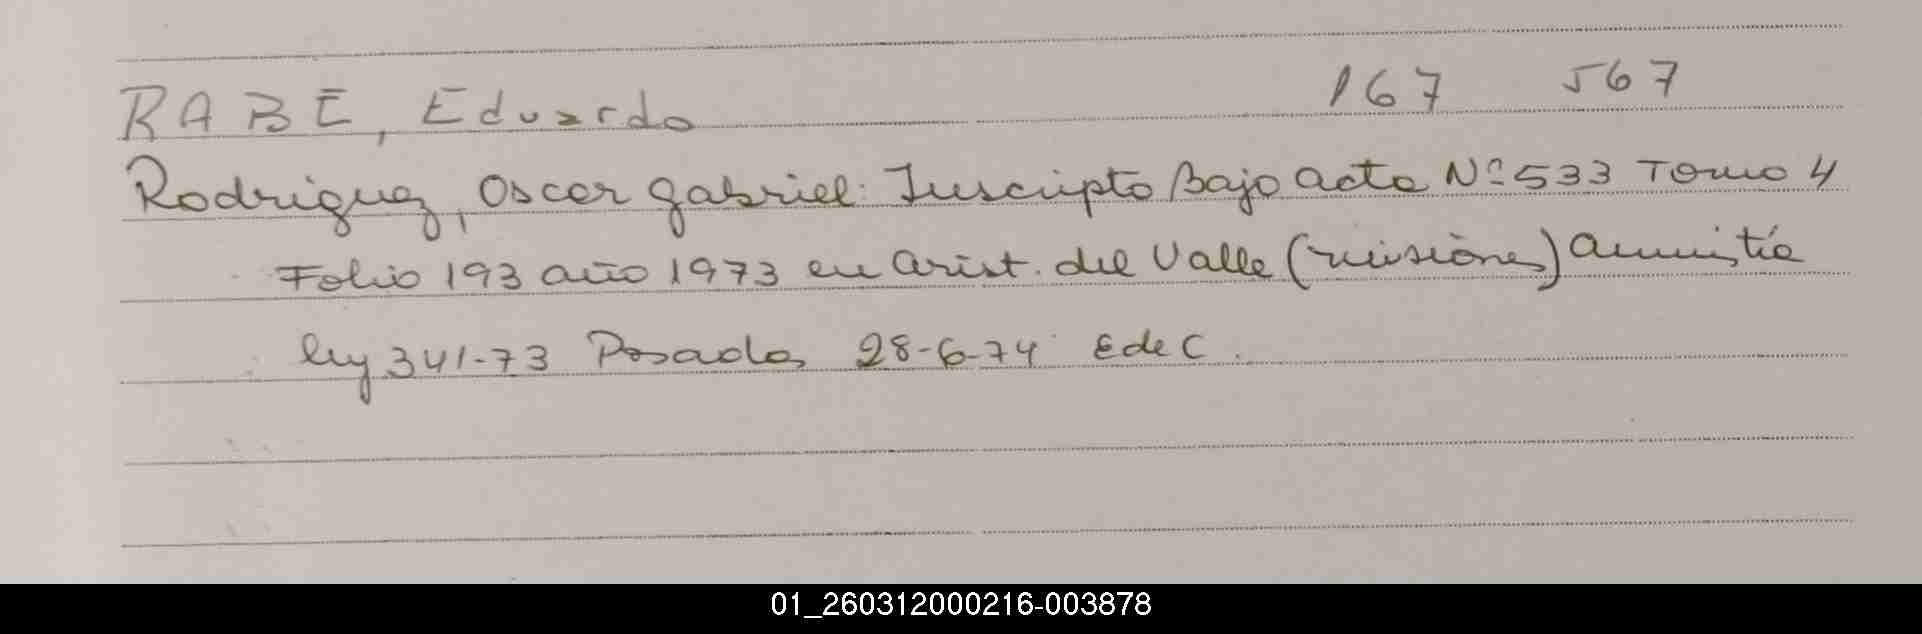 RABE, Eduardo 167 567
Rodriguez, Oscar Gabriel: Inscripto Bajo acta Nº 533 Tomo 4
Folio 193 año 1973 en Arist. del Valle (misiones) amnistía
ley 341-73 Posadas 28-6-74 E de C.
01_260312000216-003878